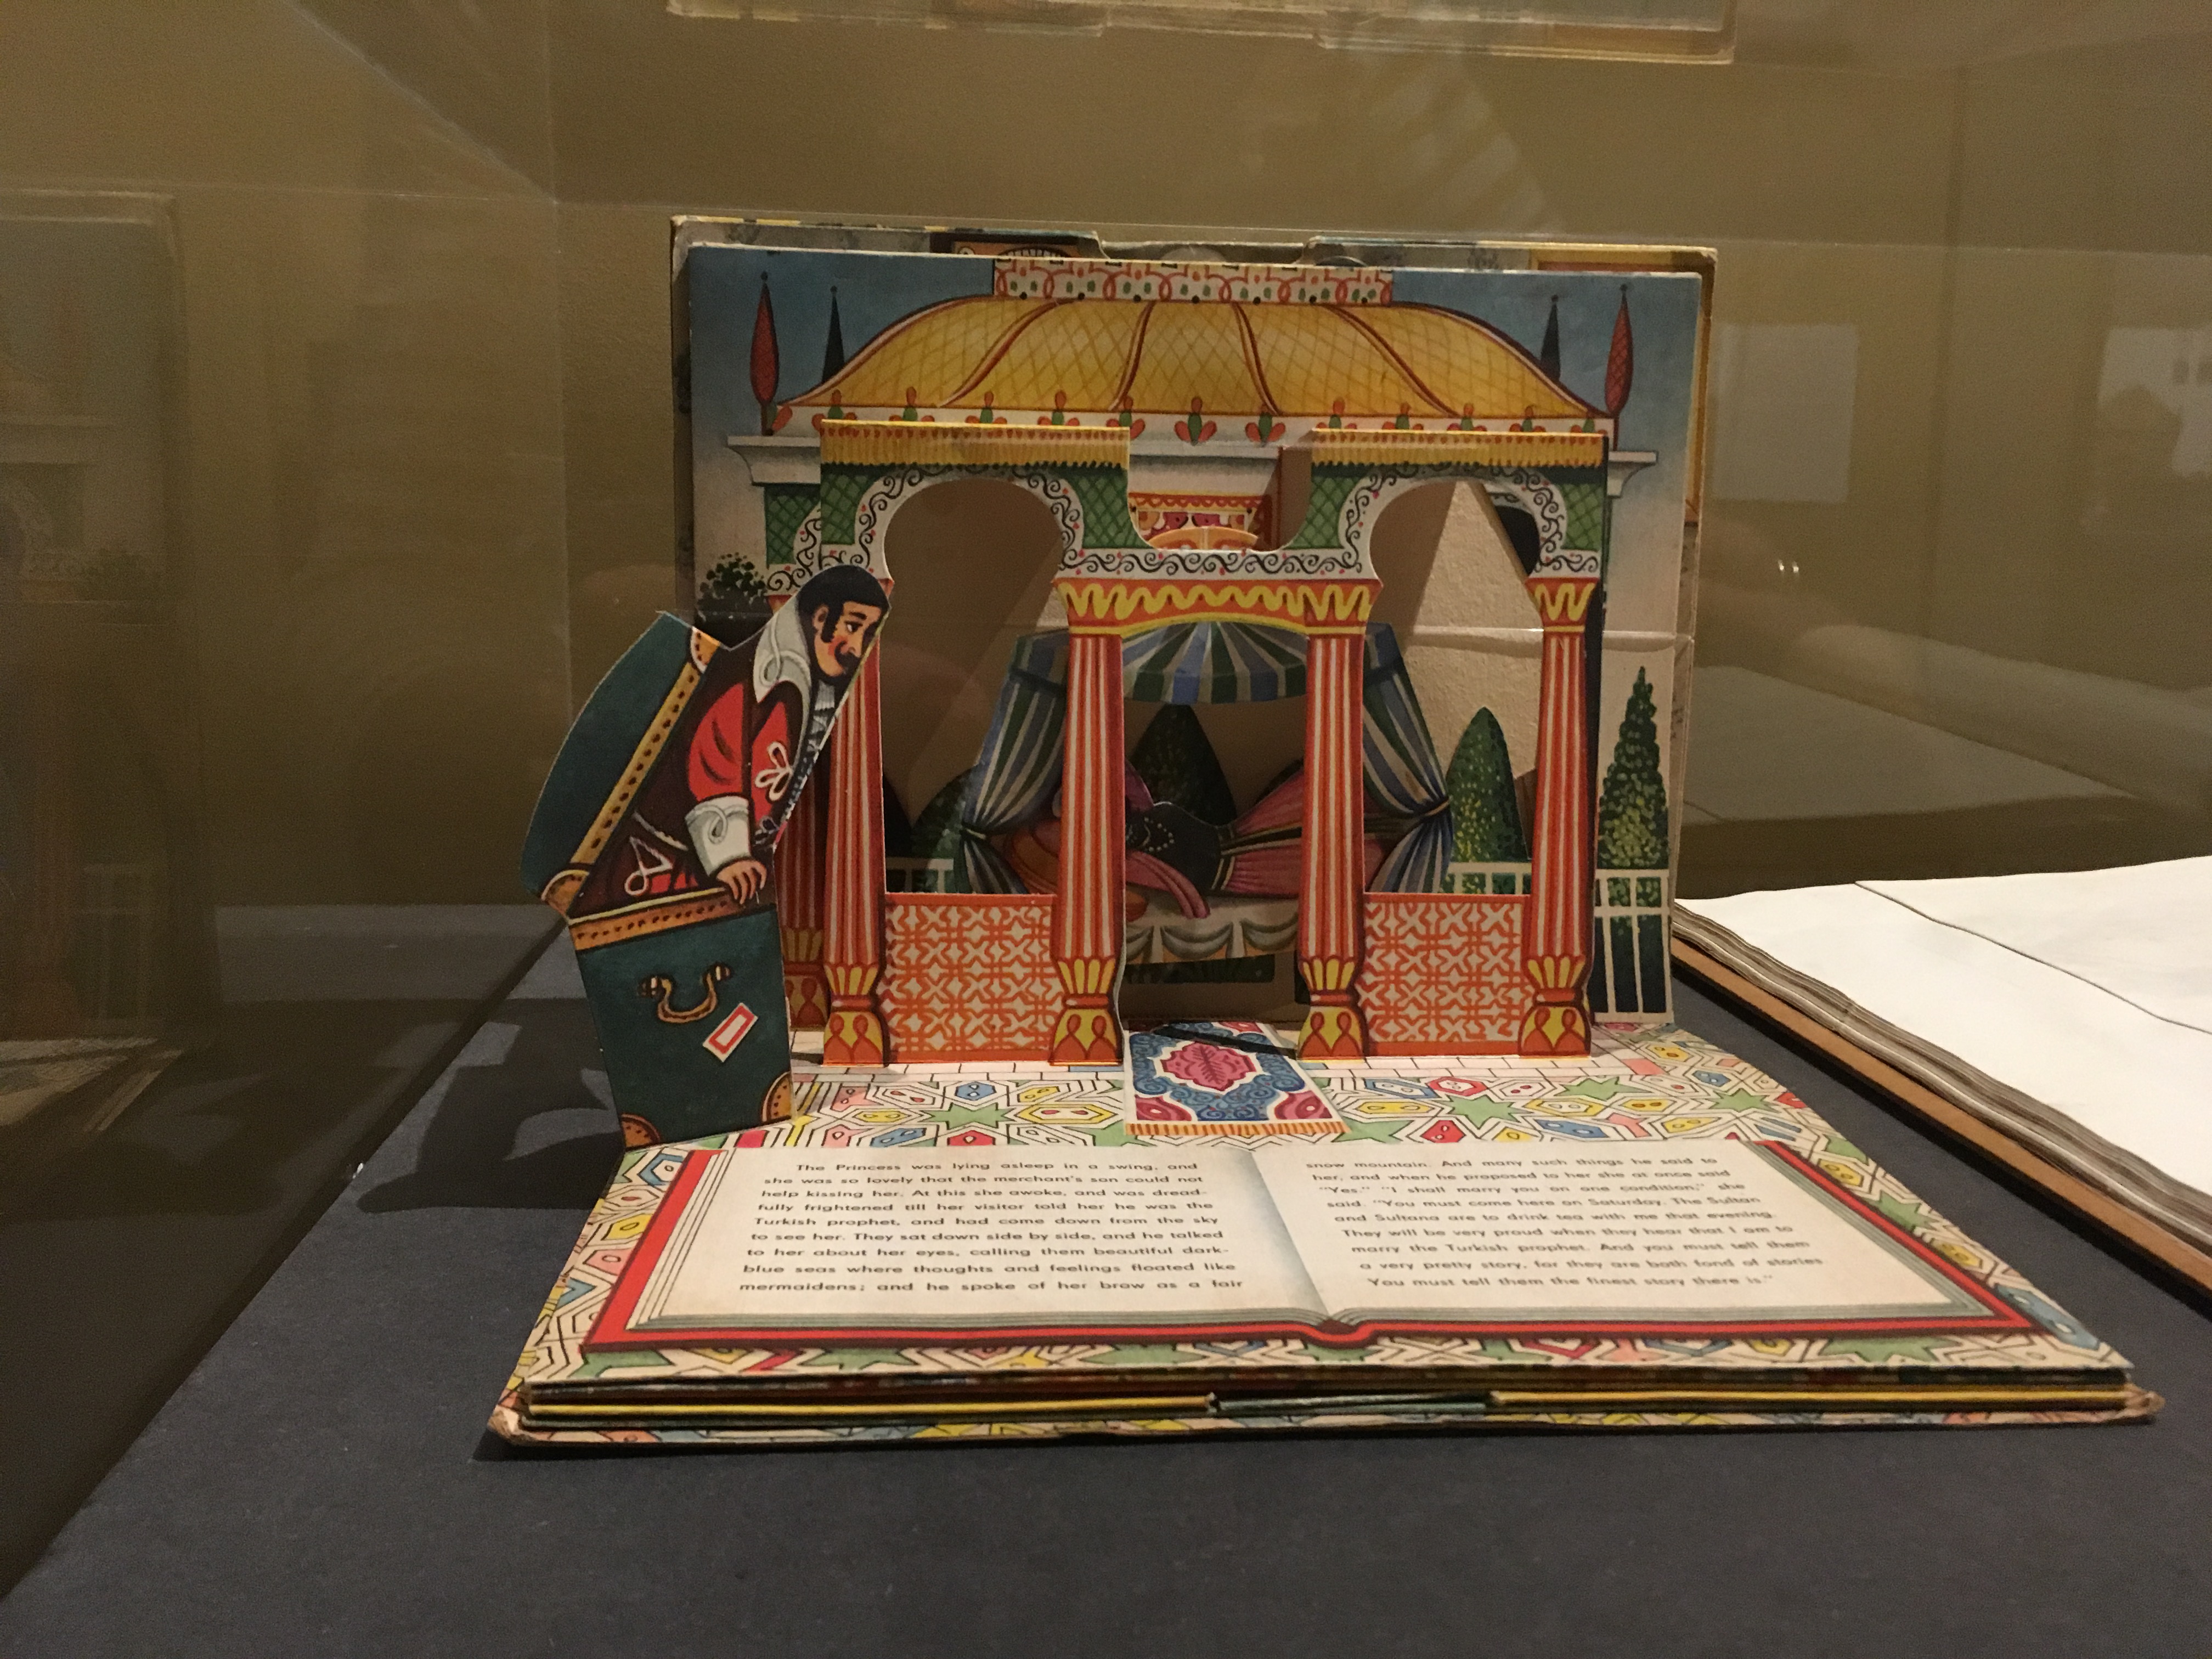 The Princess was lying asleep in a swing, and
she was so lovely that the merchant's son could not
help kissing her. At this she awoke, and was dread-
fully frightened till her visitor told her he was the
Turkish prophet, and had come down from the sky
to see her. They sat down side by side, and he talked
to her about her eyes, calling them beautiful dark-
blue seas where thoughts and feelings floated like
mermaidens; and he spoke of her brow as a fair
snow mountain. And many such things he said to
her; and when he proposed to her she at once said
"Yes." "I shall marry you on one condition," she
said. "You must come here on Saturday. The Sultan
and Sultana are to drink tea with me that evening.
They will be very proud when they hear that I am to
marry the Turkish prophet. And you must tell them
a very pretty story, for they are both fond of stories.
You must tell them the finest story there is."